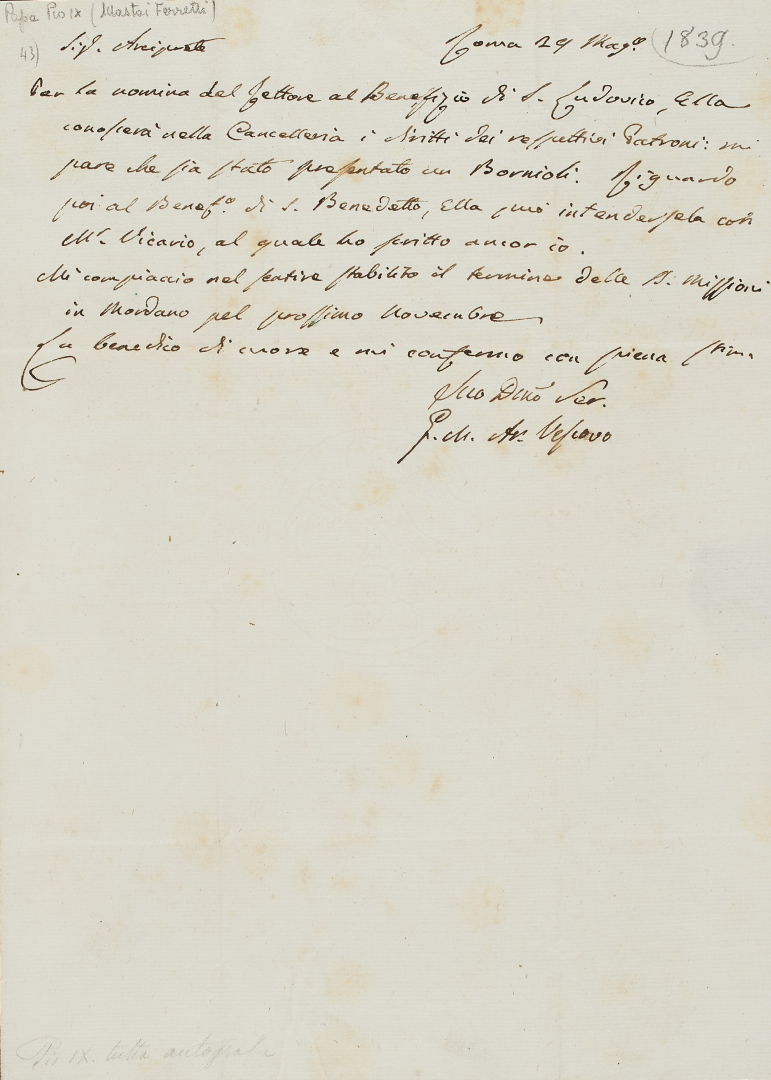 Papa Pio IX (Mastai Ferretti)
43)
Sig. Arciprete
Roma 29 Mago. 1839.
Per la nomina del Rettore al Benefizio di S. Ludovico, Ella
conoscerà nella Cancelleria i diritti dei respettivi Patroni: mi
pare che sia stato presentato un Bornioli. Riguardo
poi al Benefo. di S. Benedetto, Ella può intendersela con
Mr. Vicario, al quale ho scritto ancor io.
Mi compiaccio nel sentire stabilito il termine delle S. Missioni
in Mordano pel prossimo Novembre
La benedico di cuore e mi confermo con piena stima
Suo Dmo Ser.
G. M. Ar. Vescovo
Pio IX. tutta autografa